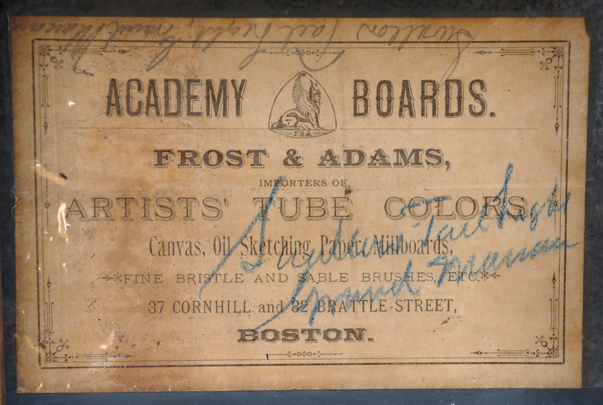 Swallow Tail Light, Grand Manan
ACADEMY BOARDS.
F & A
FROST & ADAMS,
IMPORTERS OF
ARTISTS' TUBE COLORS,
Canvas, Oil Sketching Paper, Millboards,
FINE BRISTLE AND SABLE BRUSHES, ETC.
37 CORNHILL and 32 BRATTLE STREET,
BOSTON.
Swallow Tail Light
Grand Manan